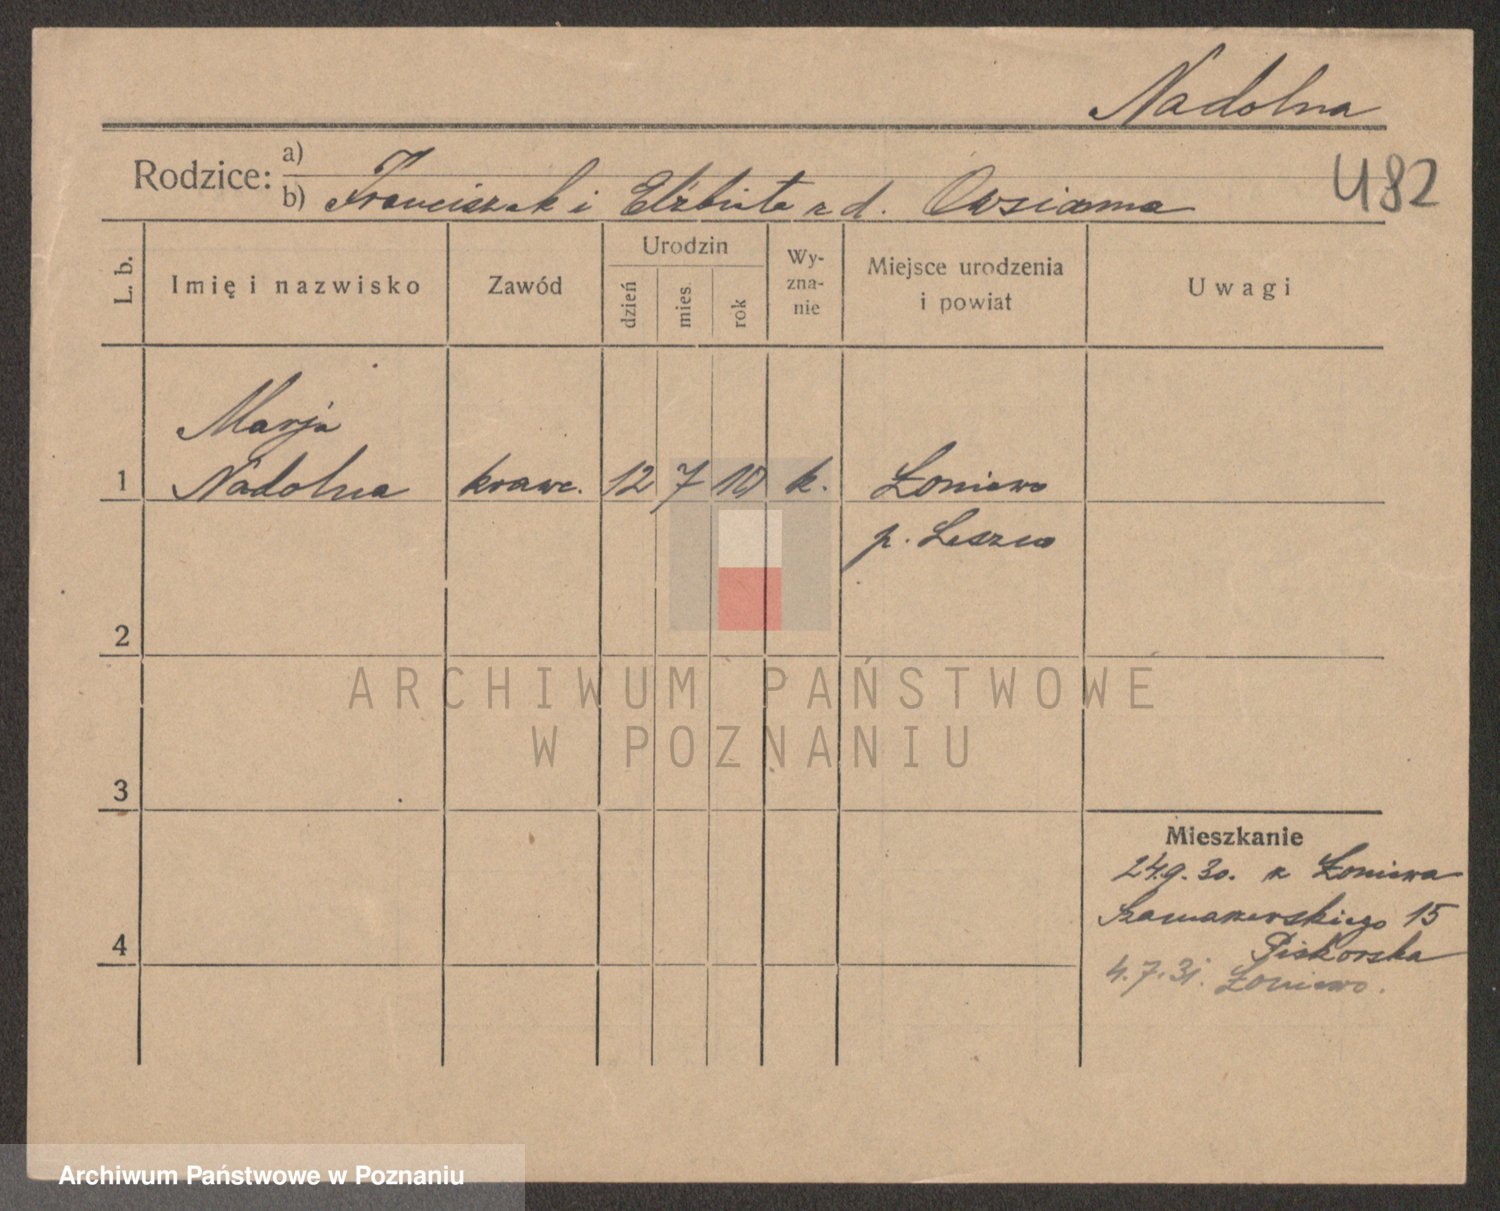 Nadolna
482
Rodzice: a)
b) Franciszek i Elżbieta z d. Owsianna
L. b.
Imię i nazwisko
Zawód
Urodzin
dzień
mies.
rok
Wy-
zna-
nie
Miejsce urodzenia
i powiat
Uwagi
Marja
1 Nadolna krawc. 12 7 10 k. Łoniewo
p. Leszno
2
3
4
Mieszkanie
24.9.30. z Łoniewa
15
Piskorska
4.7.31. Łoniewo.
ARCHIWUM PAŃSTWOWE
W POZNANIU
Archiwum Państwowe w Poznaniu